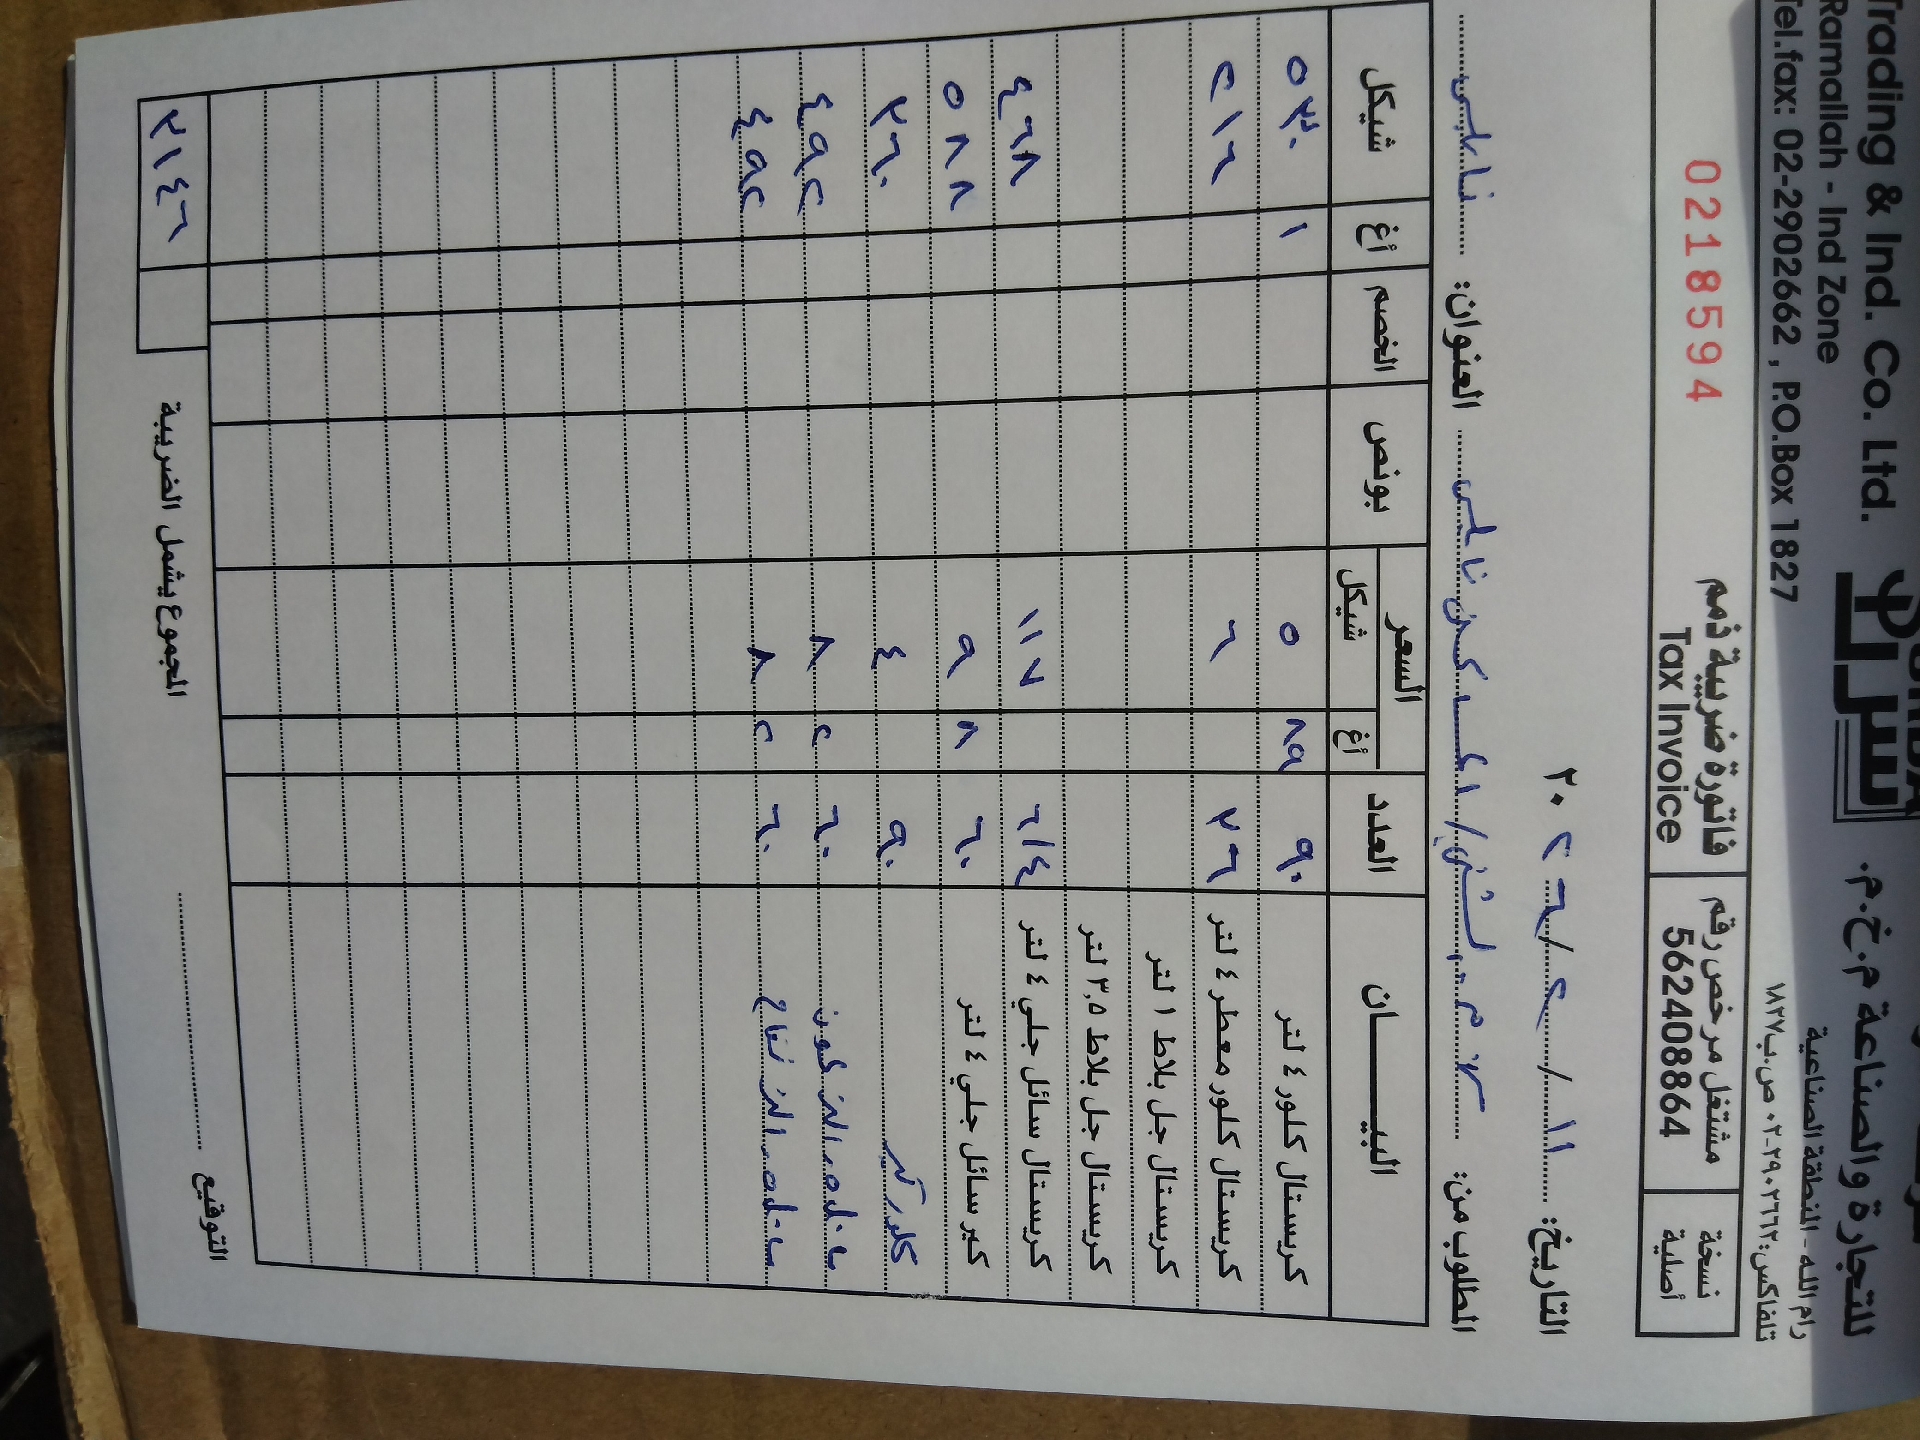 Trading & Ind. Co. Ltd.
Ramallah - Ind Zone
Tel.fax: 02-2902662 , P.O.Box 1827
للتجارة والصناعة م.خ.م.
رام الله - المنطقة الصناعية
تلفاكس: ٢٩٠٢٦٦٢-٠٢ ص.ب ١٨٢٧
نسخة أصلية
مشتغل مرخص رقم
562408864
فاتورة ضريبية ذمم
Tax Invoice
0218594
التاريخ: ١١ / ٢ / ٢٠٢٦
المطلوب من: العنوان: نابلس
البيـــــان العدد السعر بونص الخصم أغ شيكل
أغ شيكل
كريستال كلور ٤ لتر ٩٠ ٨٩ ٥ ١ ٥٣٠
كريستال كلور معطر ٤ لتر ٣٦ ٦ ٢١٦
كريستال جل بلاط ١ لتر
كريستال جل بلاط ٣,٥ لتر
كريستال سائل جلي ٤ لتر ٤/٦ ١١٧ ٤٦٨
كير سائل جلي ٤ لتر ٦٠ ٨ ٩ ٥٨٨
كلور كير ٩٠ ٤ ٣٦٠
٦٠ ٢ ٨ ٤٩٢
٦٠ ٢ ٨ ٤٩٢
المجموع يشمل الضريبة ٣١٤٦
التوقيع